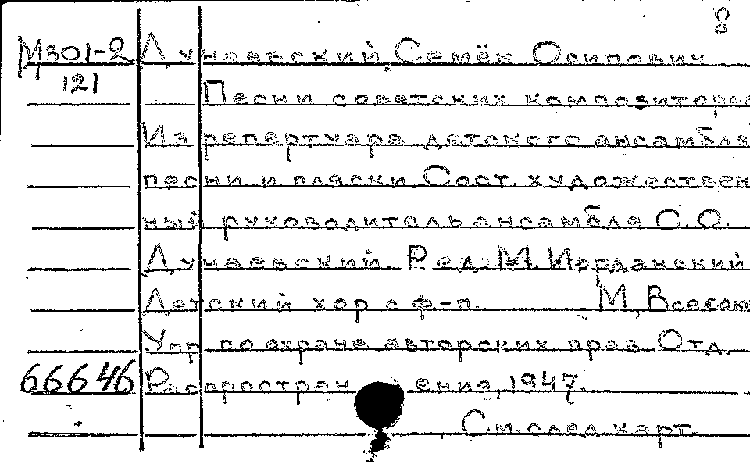 М301-2 Дунаевский, Семён Осипович
121 Песни советских композиторов
Из репертуара детского ансамбля
песни и пляски Сост. художествен
ный руководитель ансамбля С. О.
Дунаевский. Ред. М. Иорданский
Детский хор с ф-п. М., Всесоюз
Упр по охране авторских прав. Отд.
66646 Распространения, 1947.
См. след. карт.